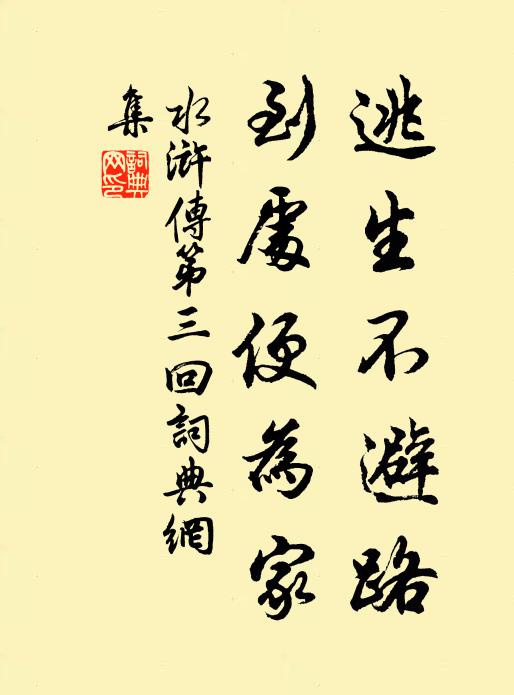 逃生不避路
到處便為家
水滸傳第三回詞典網
集
詞典
网印